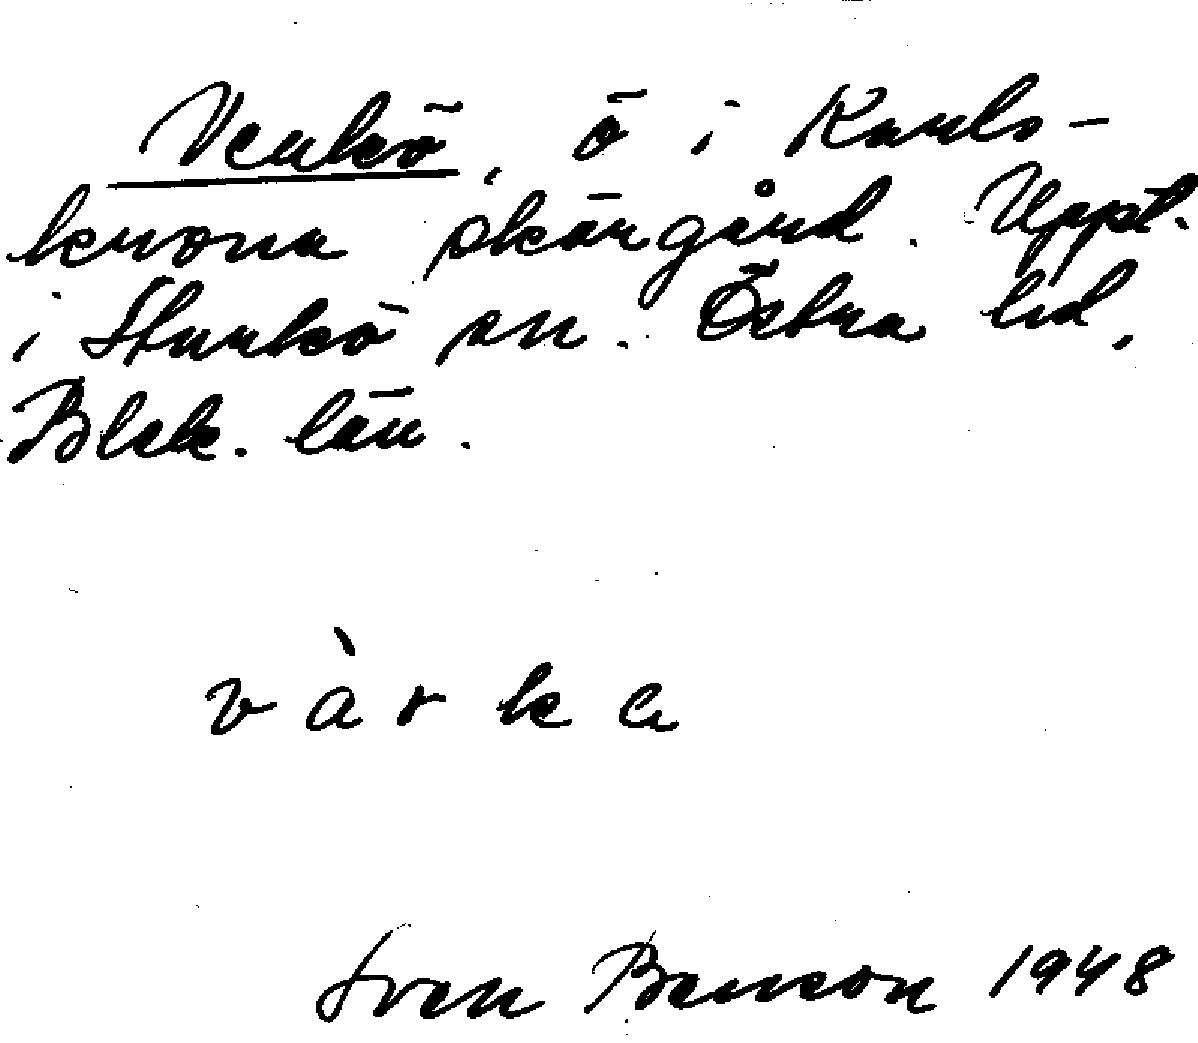 Verkö, ö i Karls-
krona skärgård. Uppt.
i Sturkö sn. Östra hd,
Blek. län.
vàrka
Sven Benson 1948